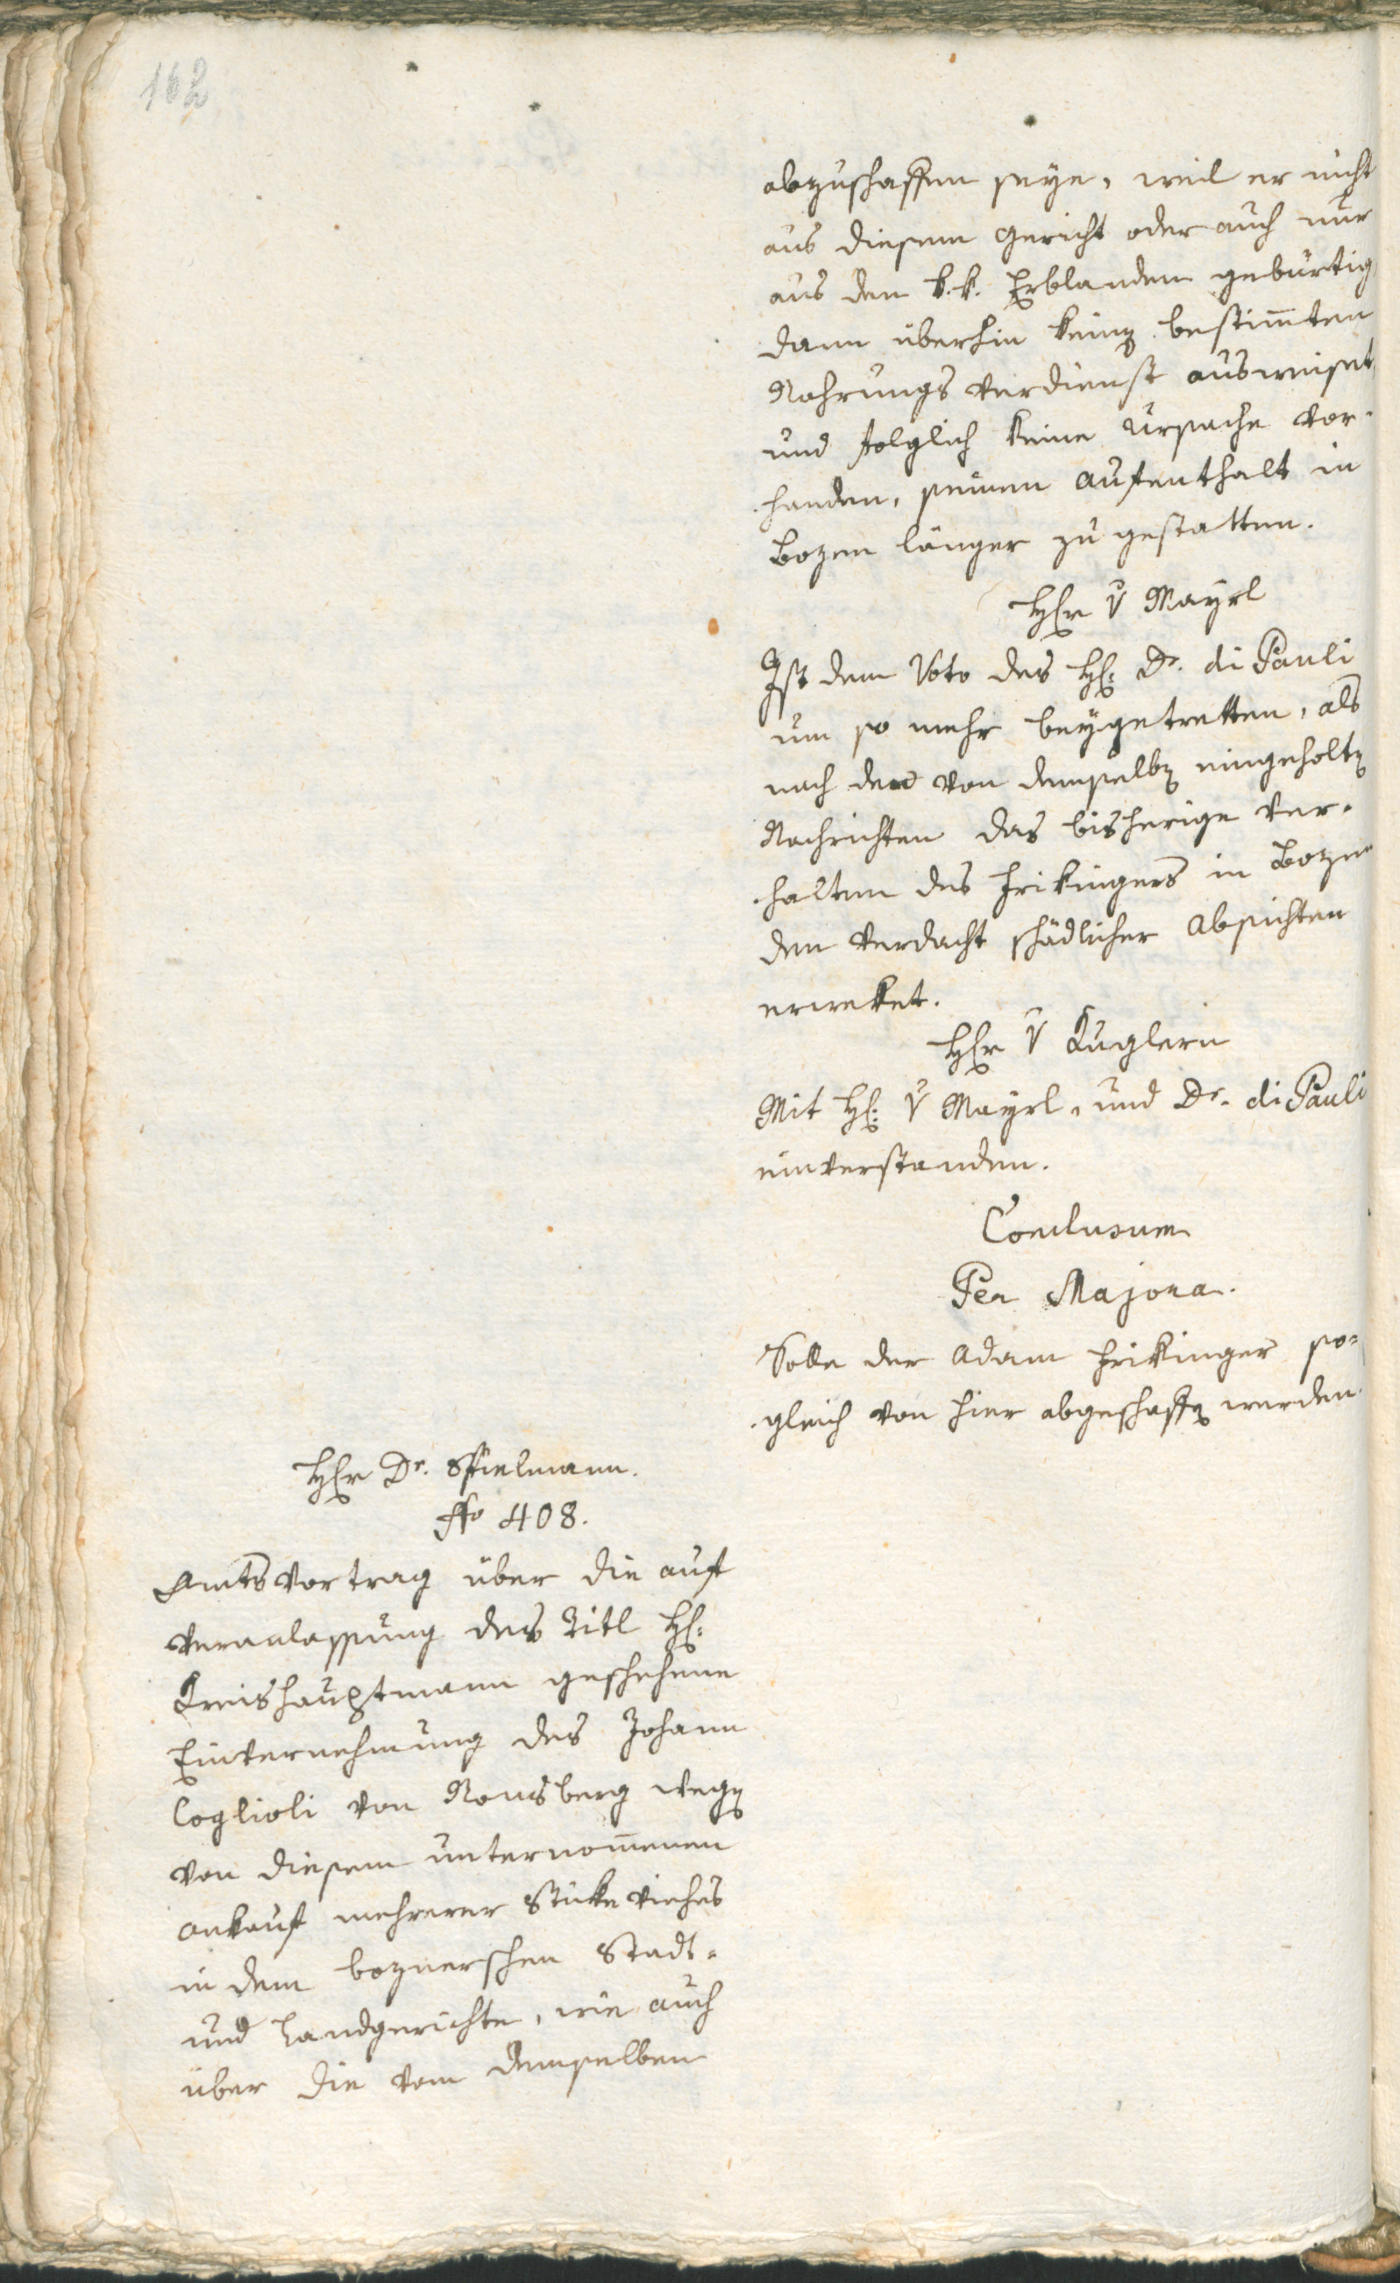 162
abzuschaffen seye, weil er nicht
aus diesem Gericht oder auch nur
aus den k. k. Erblanden gebürtig
dann überhin keinen bestim̄ten
Nahrungs verdienst ausweiset,
und folglich keine Ursache vor-
handen, seinen Aufenthalt in
Bozen länger zu gestatten.
Herr v Mayrl
Ist dem Voto des H: Dr. di Pauli
um so mehr beygetretten, als
nach den von demselben eingeholten
Nachrichten das bisherige Ver-
halten des Frikingers in Bozen
den Verdacht schädlicher Absichten
erweket.
Herr v Kuglern
Mit H: v Mayrl, und Dr. di Pauli
einverstanden.
Conclusum
Per Majora.
Solle der Adam Frikinger so=
gleich von hier abgeschafft werden.
Herr Dr. Spielmann.
408.
Amtsvortrag über die auf
Veranlassung des Titl H:
Kreishauptmann geschehene
Einvernehmung des Johann
Coglioli von Nonsberg wegen
von diesem unternom̄enen
Ankauf mehrerer Stüke Viehes
in dem boznerschen Stadt=
und Landgerichte, wie auch
über die vom demselben